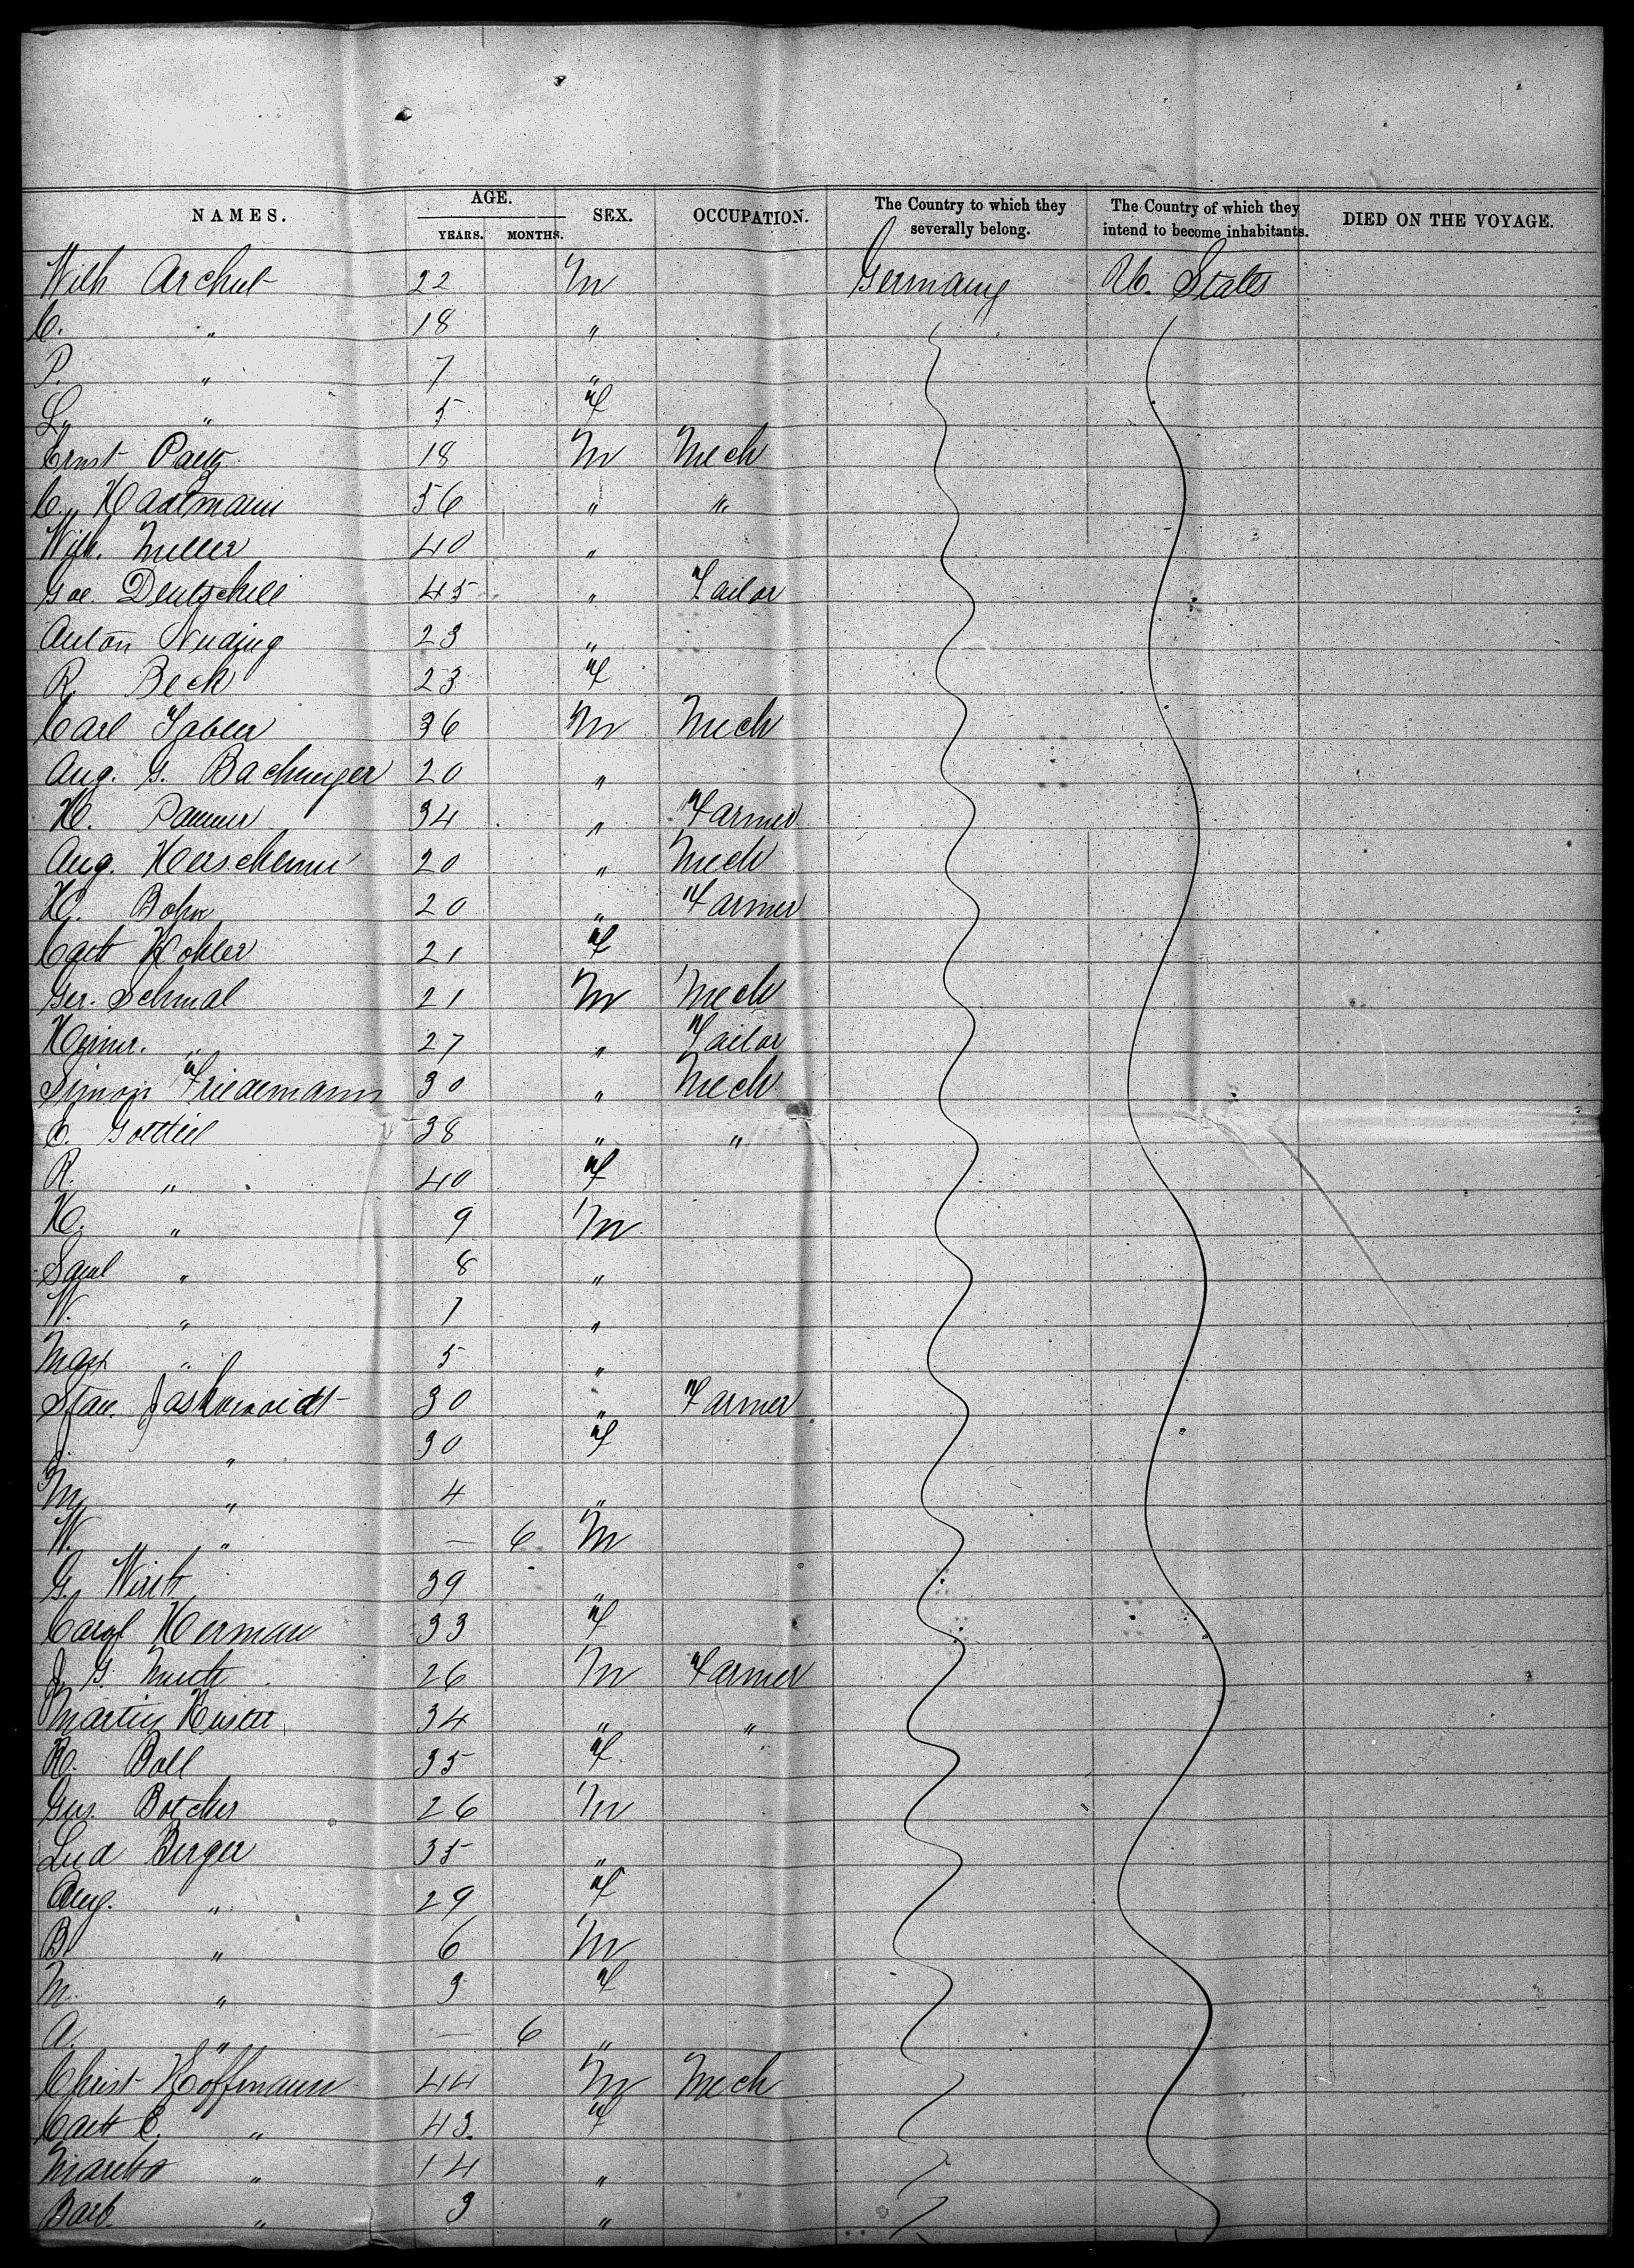 NAMES. AGE. SEX. OCCUPATION. The Country to which they severally belong. The Country of which they intend to become inhabitants. DIED ON THE VOYAGE.
YEARS. MONTHS.
Wilh Archut 22 M Germany U. States
C. " 18 "
P. " 7 "
L. " 5 F
Ernst Paetz 18 M Mech
C. Hartmann 56 " "
Wilh. Muller 40 "
45 " Tailor
Anton Nuding 23 "
R. Beck 23 F
Carl Tabler 36 M Mech
Aug. G. Bachinger 20 "
H. 34 " Farmer
Aug. 20 " Mech
H. Bohn 20 " Farmer
Cath Kohler 21 F
Ger. Schmal 21 M Mech
" 27 " Tailor
Simon Friedemann 30 " Mech
C. Gottlieb 38 " "
R. " 40 F
H. " 9 M
" 8 "
W. " 7 "
" 5 "
Stan. 30 " Farmer
" 30 F
M. " 4 "
W. " — 6 M
G. Wirth 39 "
Herman 33 F
J. G. 26 M Farmer
Martin 34 " "
Boll 35 F
Gus. Botcher 26 M
Lud Berger 35 "
Aug. " 29 F
B. " 6 M
M. " 3 F
A. " — 6 "
Christ Hoffmann 44 M Mech
Cath E. " 43 F
Martha " 14 "
Barb. " 3 "